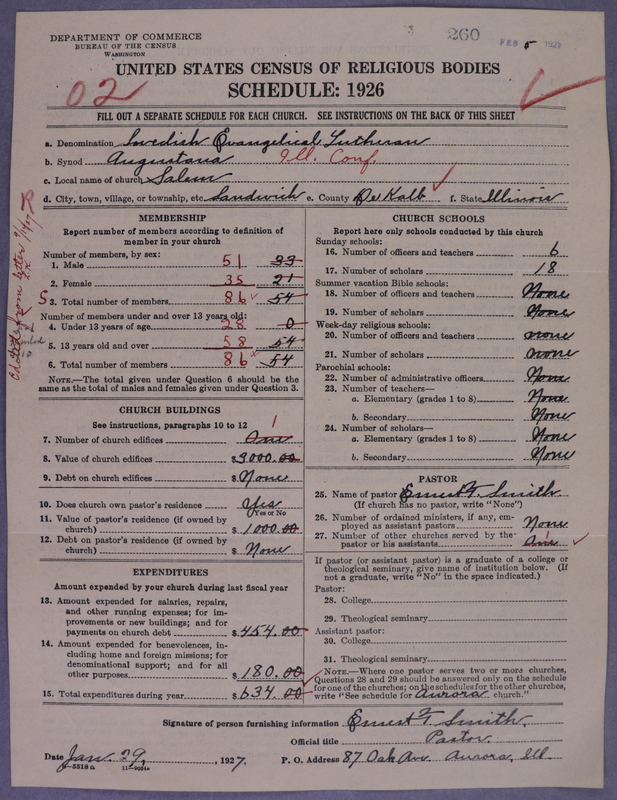 DEPARTMENT OF COMMERCE
BUREAU OF THE CENSUS
WASHINGTON
260
FEB 5 192
UNITED STATES CENSUS OF RELIGIOUS BODIES
02
SCHEDULE: 1926
FILL OUT A SEPARATE SCHEDULE FOR EACH CHURCH. SEE INSTRUCTIONS ON THE BACK OF THIS SHEET
a. Denomination Swedish Evangelical Lutheran
b. Synod Augustana Ill. Conf.
c. Local name of church Salem
d. City, town, village, or township, etc. Sandwich e. County De Kalb f. State Illinois
MEMBERSHIP
Report number of members according to definition of
member in your church
Number of members, by sex:
1. Male 51 33
2. Female 35 21
S 3. Total number of members 86 54
Number of members under and over 13 years old:
4. Under 13 years of age 28 0
5. 13 years old and over 58 54
6. Total number of members 86 54
NOTE.—The total given under Question 6 should be
same as the total of males and females given under Question 3.
CHURCH BUILDINGS
See instructions, paragraphs 10 to 12 1
7. Number of church edifices One
8. Value of church edifices $3000.00
9. Debt on church edifices $None
10. Does church own pastor's residence? Yes
Yes or No
11. Value of pastor's residence (if owned by
church) $1000.00
12. Debt on pastor's residence (if owned by
church) $ None
EXPENDITURES
Amount expended by your church during last fiscal year
13. Amount expended for salaries, repairs,
and other running expenses; for im-
provements or new buildings; and for
payments on church debt $454.00
14. Amount expended for benevolences, in-
cluding home and foreign missions; for
denominational support; and for all
other purposes $180.00
15. Total expenditures during year $634.00
CHURCH SCHOOLS
Report here only schools conducted by this church
Sunday schools:
16. Number of officers and teachers 6
17. Number of scholars 18
Summer vacation Bible schools:
18. Number of officers and teachers None
19. Number of scholars None
Week-day religious schools:
20. Number of officers and teachers none
21. Number of scholars none
Parochial schools:
22. Number of administrative officers None
23. Number of teachers—
a. Elementary (grades 1 to 8) None
b. Secondary None
24. Number of scholars—
a. Elementary (grades 1 to 8) None
b. Secondary None
PASTOR
25. Name of pastor Ernest F. Smith
(If church has no pastor, write "None")
26. Number of ordained ministers, if any, em-
ployed as assistant pastors None
27. Number of other churches served by the
pastor or his assistants One 1
If pastor (or assistant pastor) is a graduate of a college or
theological seminary, give name of institution below. (If
not a graduate, write "No" in the space indicated.)
Pastor:
28. College
29. Theological seminary
Assistant pastor:
30. College
31. Theological seminary
NOTE.—Where one pastor serves two or more churches,
Questions 28 and 29 should be answered only on the schedule
for one of the churches; on the schedules for the other churches,
write "See schedule for Aurora church."
Signature of person furnishing information Ernest F. Smith.
Official title Pastor.
Date Jan. 29, 1927. P. O. Address 87 Oak Ave. Aurora, Ill.